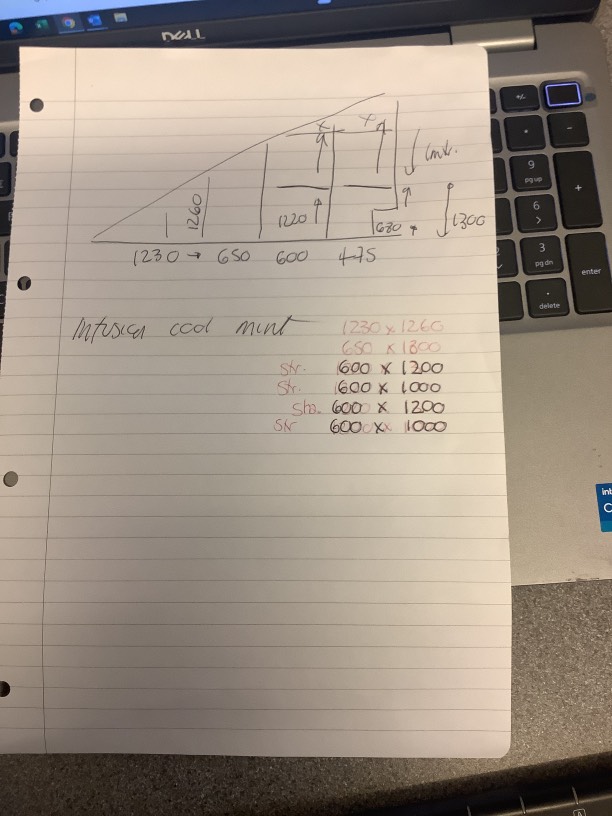 DELL
+/-
-
9
pg up
+
6
>
3
pg dn
enter
delete
int
C
x x
1mtr.
1260
1220
680
1300
1230 → 650 600 475
Infusion cool mint 1230 x 1260
650 x 1300
Str. 600 x 1200
Str. 600 x 1000
600 x 1200
Str 600 x 1000